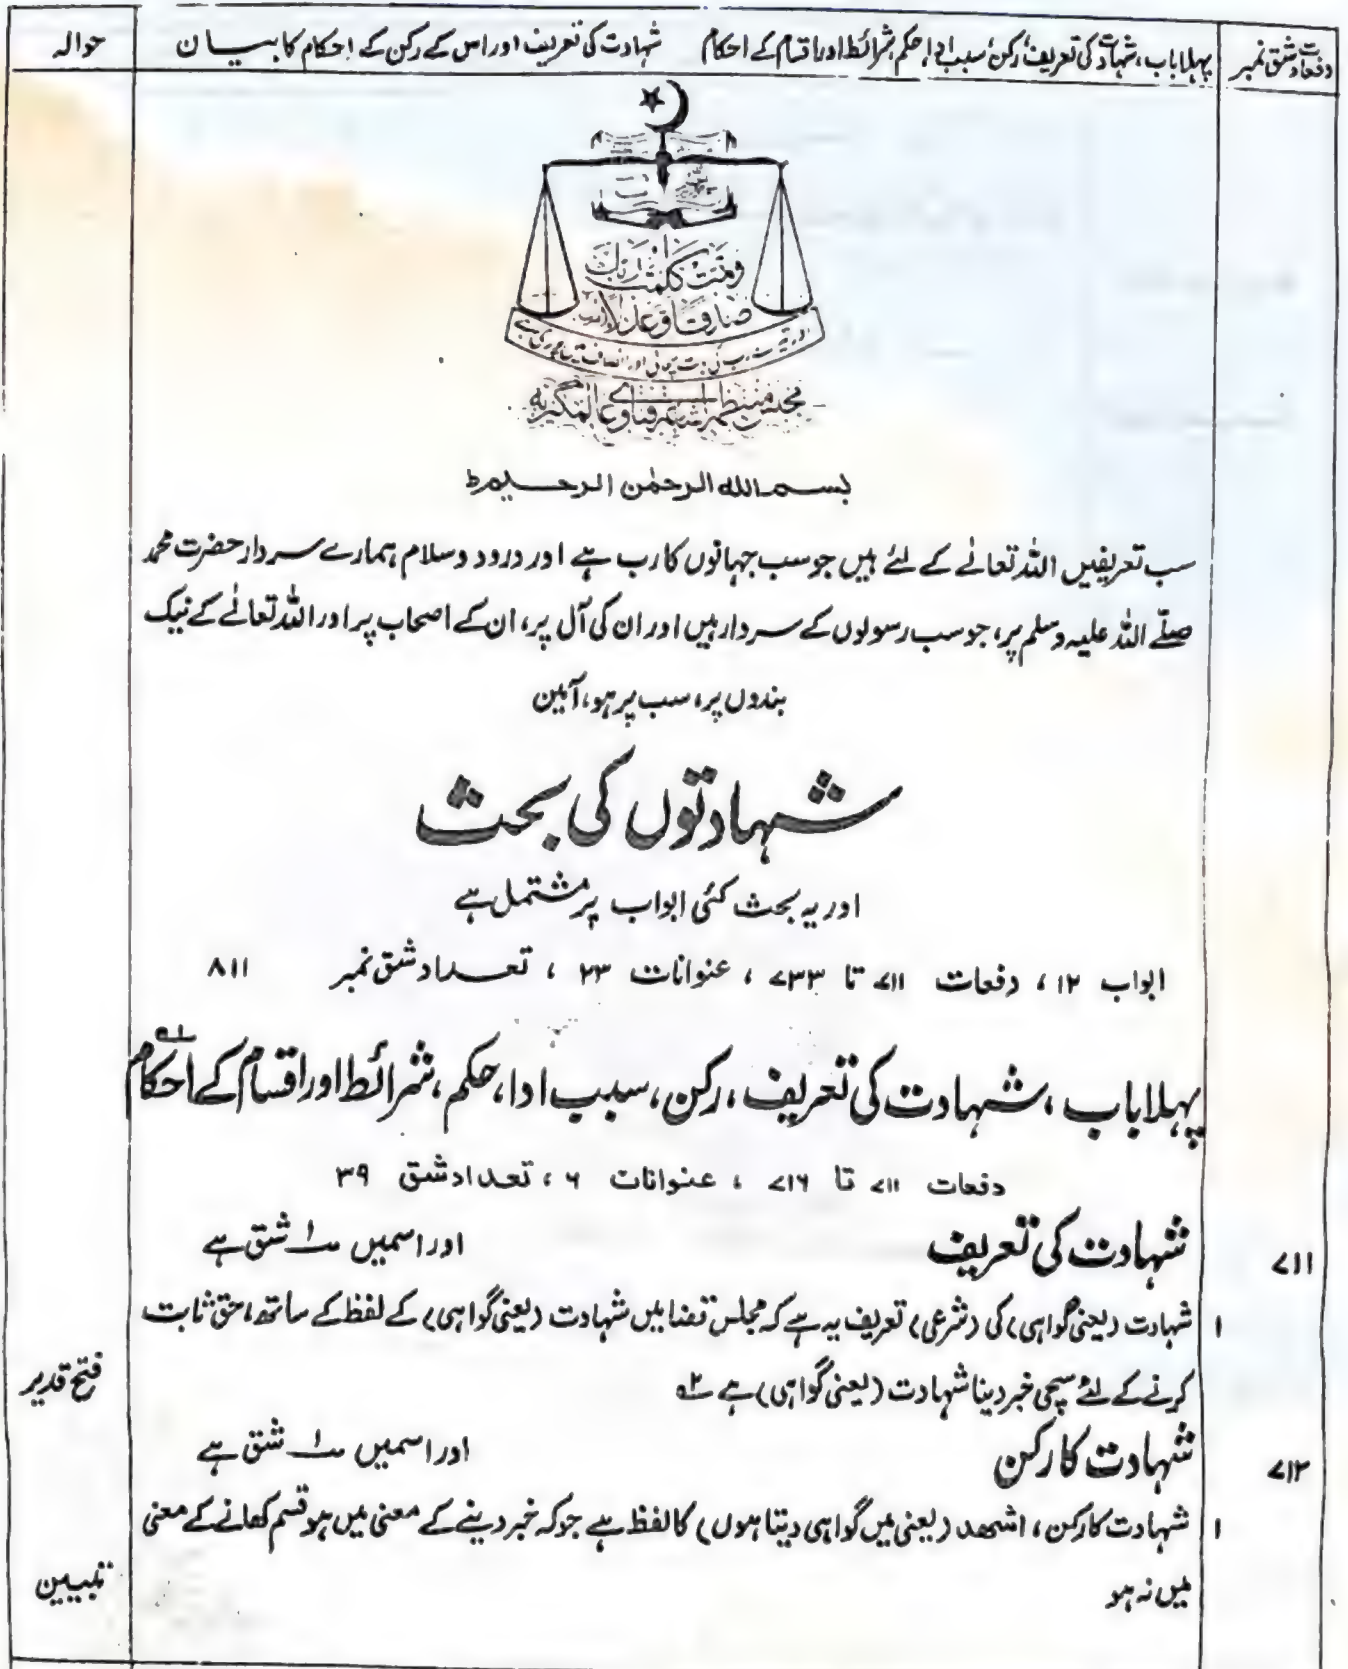 دفعات و شق نمبر
پہلا باب، شہادت کی تعریف، رکن، سبب ادا، حکم، شرائط اور اقسام کے احکام
شہادت کی تعریف اور اس کے رکن کے احکام کا بیان
حوالہ
وتمت كلمت ربك
صدقا وعدلا
بسم الله الرحمن الرحيم ط
سب تعریفیں اللہ تعالےٰ کے لئے ہیں جو سب جہانوں کا رب ہے اور درود و سلام ہمارے سردار حضرت محمد
صلّے اللہ علیہ وسلم پر، جو سب رسولوں کے سردار ہیں اور ان کی آل پر، ان کے اصحاب پر اور اللہ تعالےٰ کے نیک
بندوں پر، سب پر ہو، آمین
شہادتوں کی بحث
اور یہ بحث کئی ابواب پر مشتمل ہے
ابواب ۱۲، دفعات ۷۱۱ تا ۷۳۳، عنوانات ۲۳، تعداد شق نمبر ۸۱۱
پہلا باب، شہادت کی تعریف، رکن، سبب ادا، حکم، شرائط اور اقسام کے احکام ؎۱
دفعات ۷۱۱ تا ۷۱۶، عنوانات ۶، تعداد شق ۳۹
۷۱۱ شہادت کی تعریف اور اسمیں ۱ شق ہے
۱ شہادت (یعنی گواہی) کی (شرعی) تعریف یہ ہے کہ مجلس قضا میں شہادت (یعنی گواہی) کے لفظ کے ساتھ، حق ثابت
کرنے کے لئے سچی خبر دینا شہادت (یعنی گواہی) ہے ؎۲ فتح قدیر
۷۱۲ شہادت کا رکن اور اسمیں ۱ شق ہے
۱ شہادت کا رکن، اشھد (یعنی میں گواہی دیتا ہوں) کا لفظ ہے جو کہ خبر دینے کے معنی میں ہو قسم کھانے کے معنی
میں نہ ہو تبیین